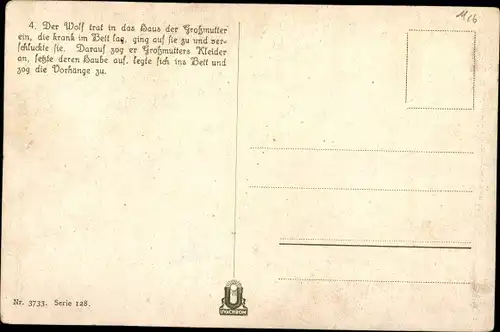 4. Der Wolf trat in das Haus der Großmutter
ein, die krank im Bett lag, ging auf sie zu und ver-
schluckte sie. Darauf zog er Großmutters Kleider
an, setzte deren Haube auf, legte sich ins Bett und
zog die Vorhänge zu.
Nr. 3733. Serie 128.
U
UVACHROM